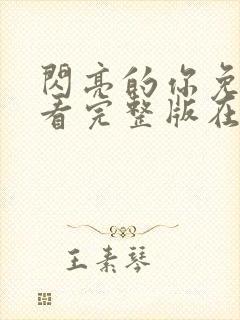 閃亮的你免
看完整版在
王素琴